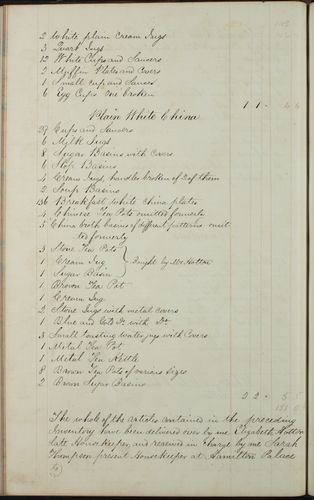 2 White plain Cream Jugs
3 Quart Jugs
12 White Cups and Saucers
2 Muffin Plates and Covers
1 Small cup and Saucer
6 Egg Cups one broken
1 1
Plain White China
29 Cups and Saucers
6 Mylk Jugs
8 Sugar Basins with covers
6 Slop Basins
4 Cream Jugs, handles broken of 2 of them
2 Soup Basins
136 Breakfast white china plates
4 Chinese Tea Pots omitted formerly
5 China broth basins of different patterns omit
ted formerly
3 Stone Tea Pots
1 Cream Jug
Bought by Mrs Hutton
1 Sugar Basin
1 Brown Tea Pot
1 Cream Jug
2 Stone Jugs with metal covers
1 Blue and Gold Do with Do
3 Small toasting water jugs with Covers
1 Metal Tea Pot
1 Metal Tea Kettle
8 Brown Tea Pots of various sizes
2 Brown Sugar Basins
2 2
The whole of the articles contained in the preceding
Inventory have been delivered over by me Elizabeth Hutton
late Housekeeper, and received in charge by me Sarah
Thompson present Housekeeper at Hamilton Palace